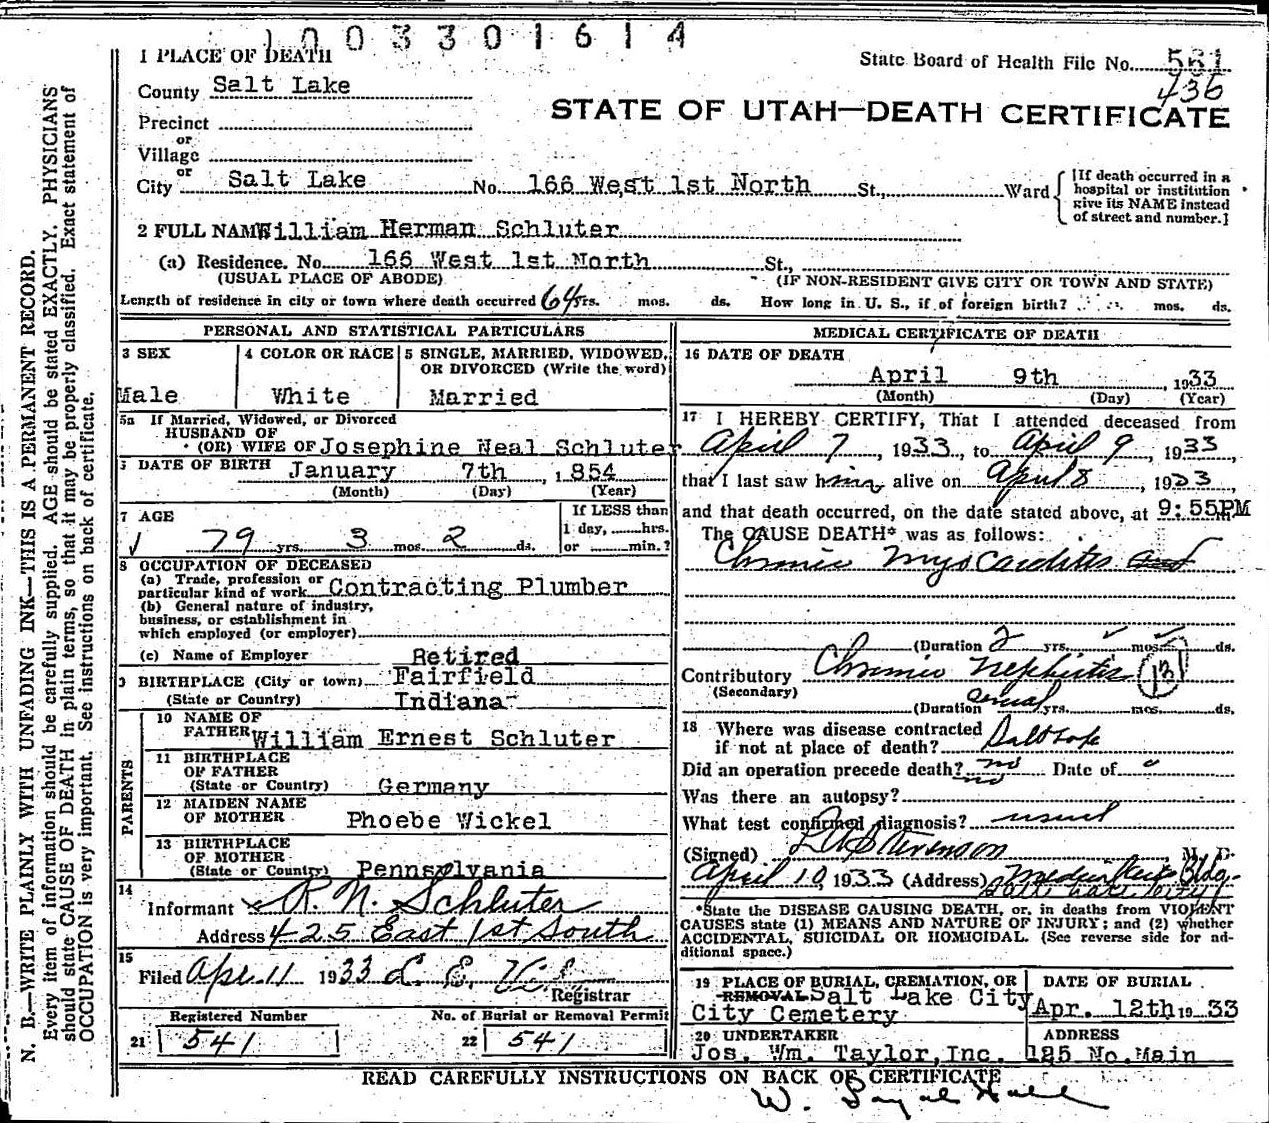 1003301614
1 PLACE OF DEATH
State Board of Health File No. 561
436
County Salt Lake
STATE OF UTAH—DEATH CERTIFICATE
Precinct
or
Village
or
City Salt Lake No. 166 West 1st North St., Ward
[If death occurred in a
hospital or institution
give its NAME instead
of street and number.]
2 FULL NAME William Herman Schluter
(a) Residence. No. 166 West 1st North St.,
(USUAL PLACE OF ABODE) (IF NON-RESIDENT GIVE CITY OR TOWN AND STATE)
Length of residence in city or town where death occurred 64 yrs. mos. ds. How long in U. S., if of foreign birth? mos. ds.
PERSONAL AND STATISTICAL PARTICULARS
3 SEX 4 COLOR OR RACE 5 SINGLE, MARRIED, WIDOWED,
OR DIVORCED (Write the word)
Male White Married
5a If Married, Widowed, or Divorced
HUSBAND OF
(OR) WIFE OF Josephine Neal Schluter
DATE OF BIRTH January 7th, 1854
(Month) (Day) (Year)
7 AGE If LESS than
1 day, hrs.
79 yrs. 3 mos. 2 ds. or min.?
8 OCCUPATION OF DECEASED
(a) Trade, profession or
particular kind of work Contracting Plumber
(b) General nature of industry,
business, or establishment in
which employed (or employer)
(c) Name of Employer Retired
9 BIRTHPLACE (City or town) Fairfield
(State or Country) Indiana
PARENTS
10 NAME OF
FATHER William Ernest Schluter
11 BIRTHPLACE
OF FATHER
(State or Country) Germany
12 MAIDEN NAME
OF MOTHER Phoebe Wickel
13 BIRTHPLACE
OF MOTHER
(State or Country) Pennsylvania
14
Informant R. N. Schluter
Address 425 East 1st South
15
Filed Apr. 11 1933
Registrar
Registered Number No. of Burial or Removal Permit
21 541 22 541
MEDICAL CERTIFICATE OF DEATH
16 DATE OF DEATH
April 9th, 1933
(Month) (Day) (Year)
17 I HEREBY CERTIFY, That I attended deceased from
April 7, 1933, to April 9, 1933,
that I last saw him alive on April 8, 1933,
and that death occurred, on the date stated above, at 9:55PM
The CAUSE DEATH* was as follows:
Chronic myocarditis and
(Duration 2 yrs. mos. ds.
Contributory Chronic Nephritis 131
(Secondary)
(Duration several yrs. mos. ds.
18 Where was disease contracted
if not at place of death? Salt Lake
Did an operation precede death? no Date of
Was there an autopsy? no
What test confirmed diagnosis? usual
(Signed) Stevenson M. D.
April 10, 1933 (Address) Bldg.
Salt Lake City
*State the DISEASE CAUSING DEATH, or, in deaths from VIOLENT
CAUSES state (1) MEANS AND NATURE OF INJURY; and (2) whether
ACCIDENTAL, SUICIDAL OR HOMICIDAL. (See reverse side for ad-
ditional space.)
19 PLACE OF BURIAL, CREMATION, OR DATE OF BURIAL
REMOVAL Salt Lake City
City Cemetery Apr. 12th 1933
20 UNDERTAKER ADDRESS
Jos. Wm. Taylor, Inc. 125 No. Main
READ CAREFULLY INSTRUCTIONS ON BACK OF CERTIFICATE
N. B.—WRITE PLAINLY WITH UNFADING INK—THIS IS A PERMANENT RECORD.
Every item of information should be carefully supplied. AGE should be stated EXACTLY. PHYSICIANS
should state CAUSE OF DEATH in plain terms, so that it may be properly classified. Exact statement of
OCCUPATION is very important. See instructions on back of certificate.